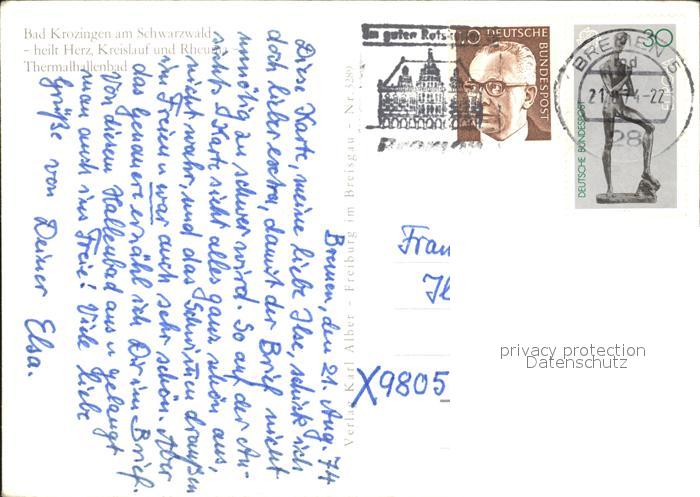 Bad Krozingen am Schwarzwald
– heilt Herz, Kreislauf und Rheuma –
Thermalhallenbad
Bremen, den 21. Aug. 74
Diese Karte, meine liebe Ilse, schick ich
doch lieber extra, damit der Brief nicht
unnötig zu schwer wird. So auf der An-
sichts-Karte sieht alles ganz schön aus,
nicht wahr, und das Schwimmen draußen
im Freien war auch sehr schön. Aber
das genauere erzähl ich Dir im Brief.
Von diesem Hallenbad aus gelangt
man auch ins Freie! Viele liebe
Grüße von Deiner Elsa.
Verlag Karl Alber – Freiburg im Breisgau – Nr. 3289
Im guten
Bremen
DEUTSCHE
BUNDESPOST
30
DEUTSCHE BUNDESPOST
BREMEN 5
21.8.74-22
28
Frau
X9805
privacy protection
Datenschutz